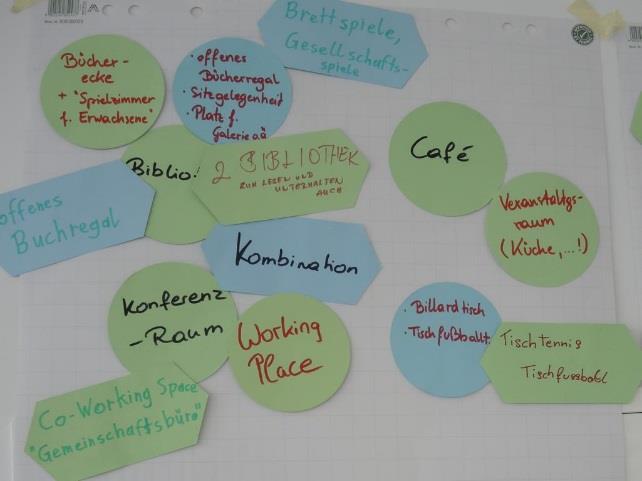 Bücher-
ecke
+ "Spielzimmer
f. Erwachsene"
· offenes
Bücherregal
· Sitzgelegenheit
· Platz f.
Galerie o.ä
Brettspiele,
Gesellschafts-
spiele
Biblio
2 BIBLIOTHEK
ZUM LESEN UND
UNTERHALTEN
AUCH
Café
offenes
Buchregal
Veranstaltgs-
raum
(Küche,...!)
Kombination
Konferenz
-Raum
Working
Place
· Billardtisch
· Tischfußball
Tischtennis
Tischfussball
Co-Working Space
"Gemeinschaftsbüro"